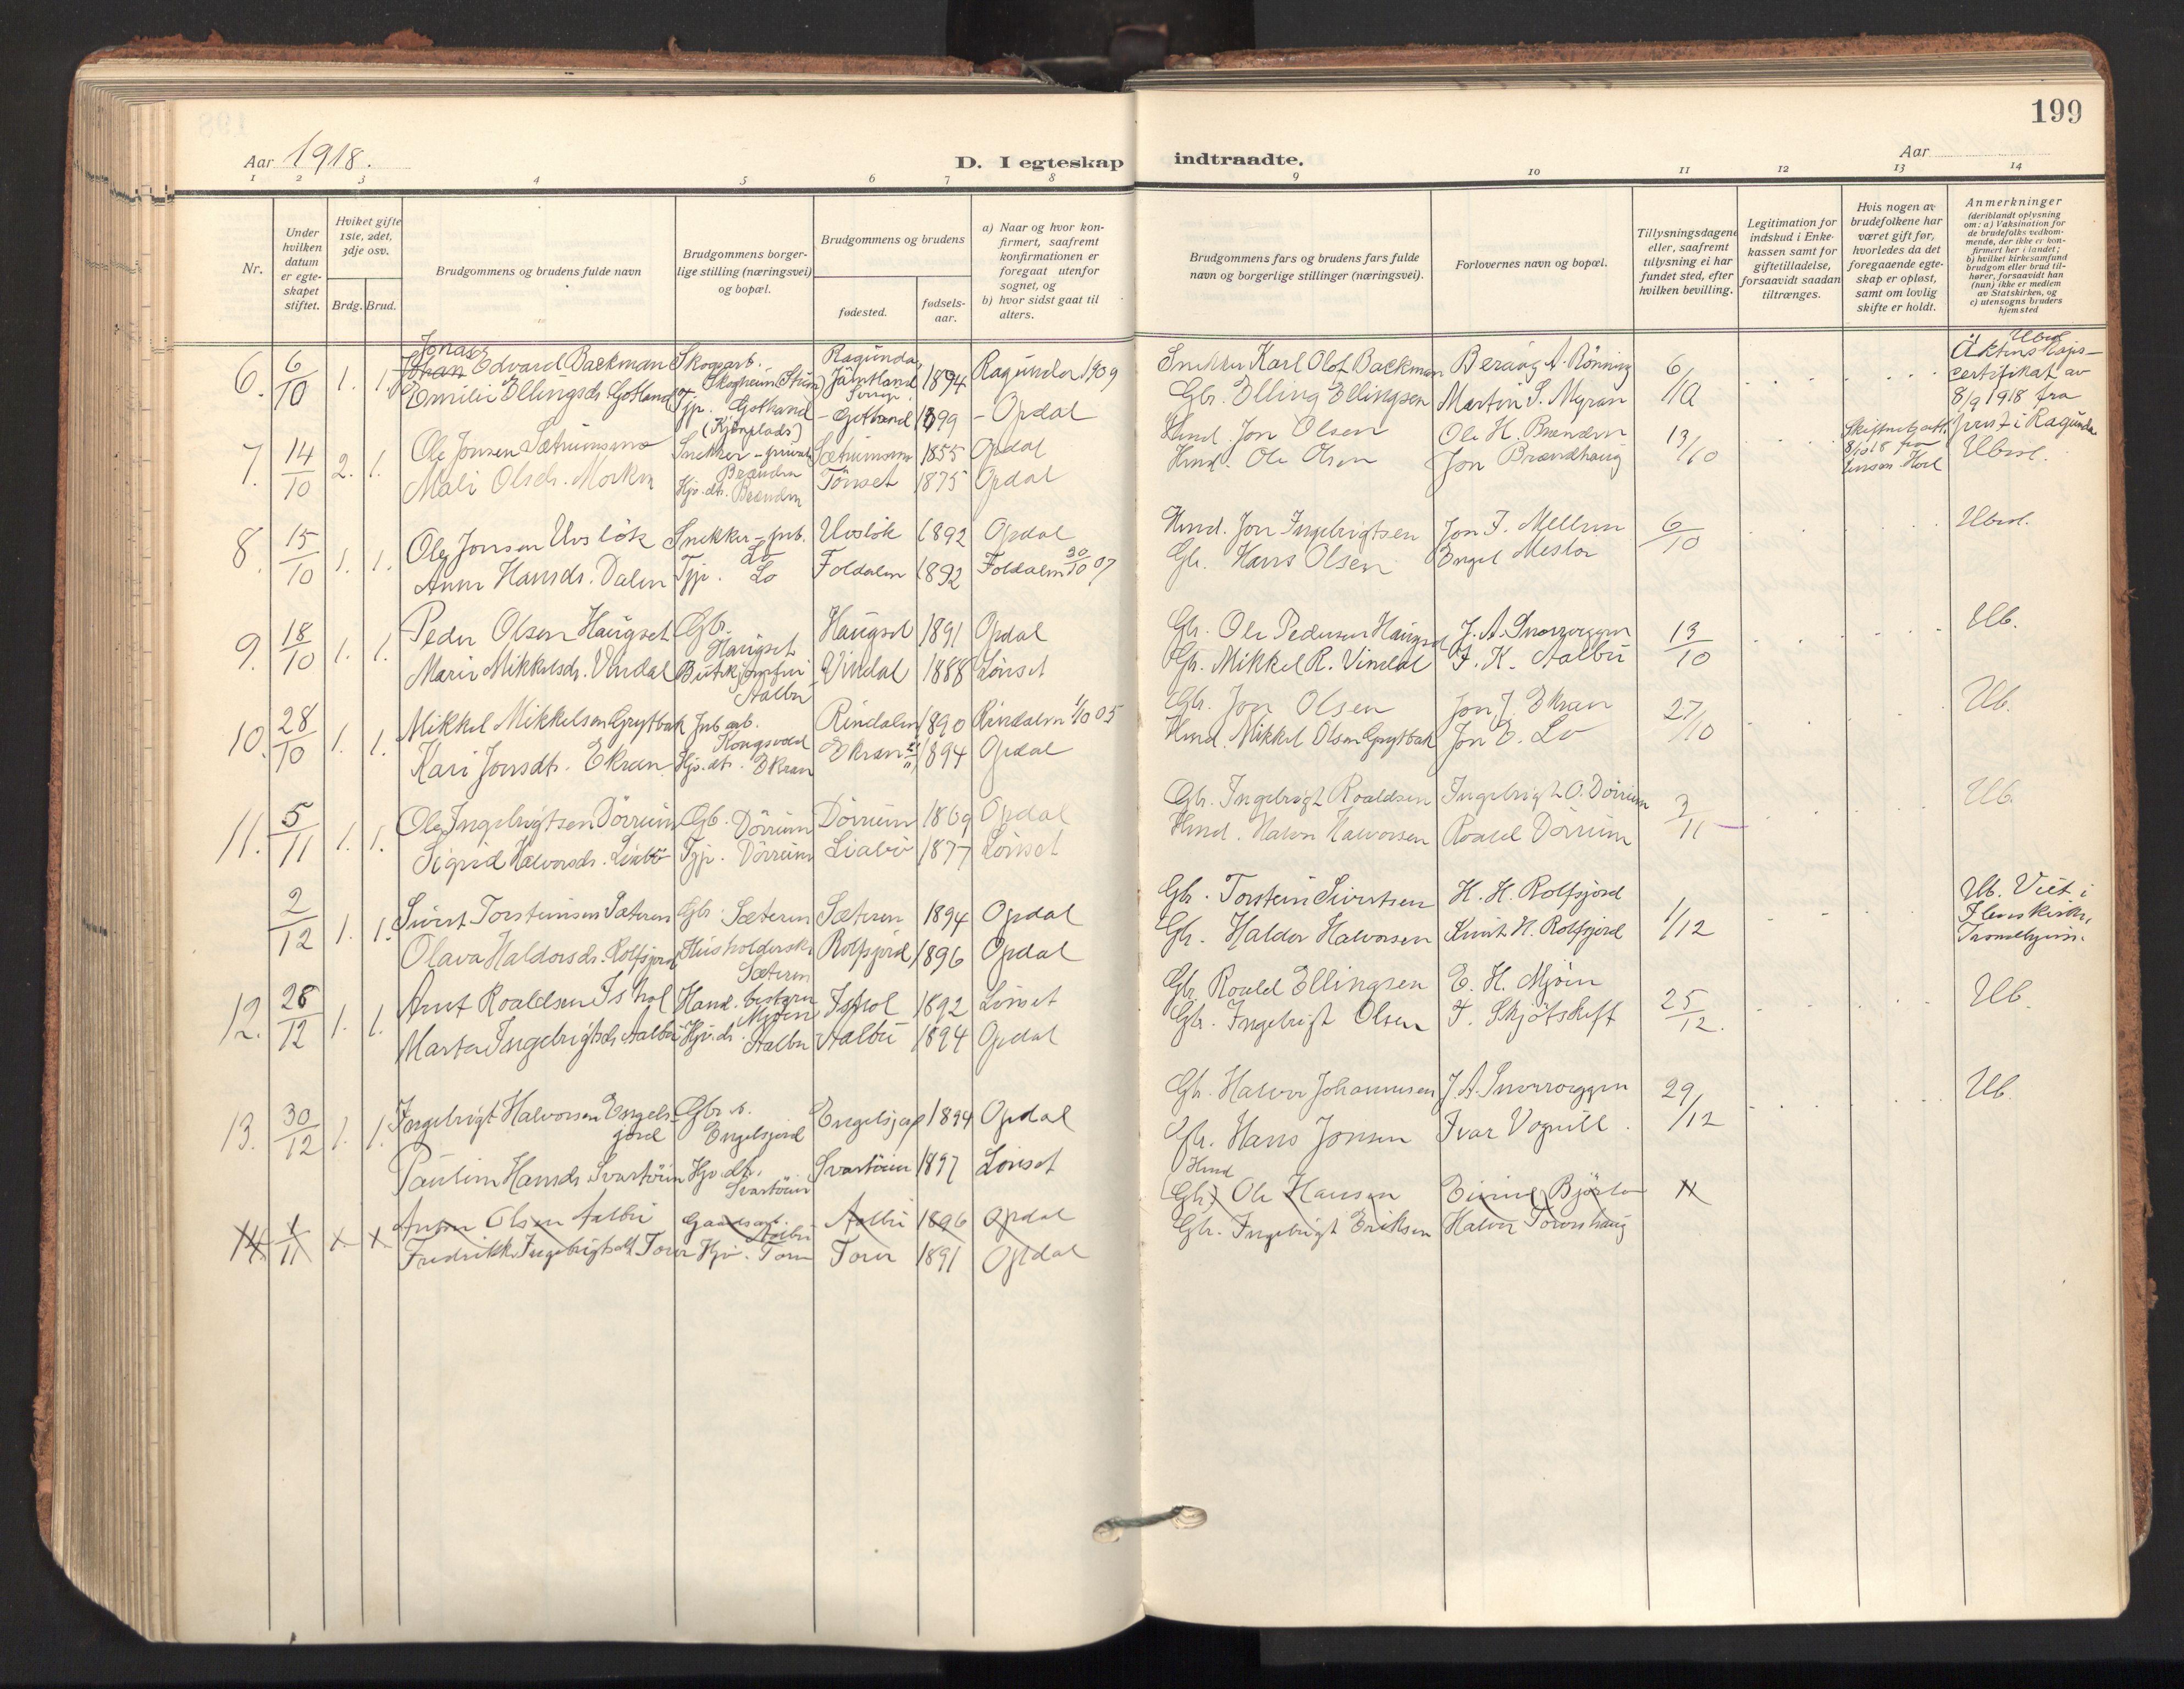 199
Aar 1918.
D. I egteskap indtraadte.
Aar
1 2 3 4 5 6 7 8 9 10 11 12 13 14
Nr.
Under hvilken datum er egteskapet stiftet.
Hviket gifte 1ste, 2det, 3dje osv.
Brdg. Brud.
Brudgommens og brudens fulde navn
Brudgommens borgerlige stilling (næringsvei) og bopæl.
Brudgommens og brudens
fødested.
fødselsaar.
a) Naar og hvor konfirmert, saafremt konfirmationen er foregaat utenfor sognet, og
b) hvor sidst gaat til alters.
Brudgommens fars og brudens fars fulde navn og borgerlige stillinger (næringsvei).
Forlovernes navn og bopæl.
Tillysningsdagene eller, saafremt tillysning ei har fundet sted, efter hvilken bevilling.
Legitimation for indskud i Enkekassen samt for giftetilladelse, forsaavidt saadan tiltrænges.
Hvis nogen av brudefolkene har været gift før, hvorledes da det foregaaende egteskap er opløst, samt om lovlig skifte er holdt.
Anmerkninger
(deriblandt oplysning om: a) Vaksination for de brudefolks vedkommende, der ikke er konfirmert her i landet;
b) hvilket kirkesamfund brudgom eller brud tilhører, forsaavidt han (hun) ikke er medlem av Statskirken, og
c) utensogns bruders hjemsted
6. 6/10 1. 1. Jonas Johan Edvard Backman Skogsarb. Ragunda, Jämtland 1894 Ragunda 1909 Snekker Karl Olof Backman A. Rönning 6/10
Emilie Ellingsdr. Gotland Tjp. Gotland Gotland 1899 - Opdal Gbr. Elling Ellingsen Martin S. Myran
certifikat av 8/9 1918 fra prest i Ragunda
7. 14/10 2. 1. Ole Jonsen Snekker 1855 Opdal Hmd. Jon Olsen Ole H. Brænden 13/10
Mali Olsdr. Morken Hjv. dtr. Brænden Tönset 1875 Opdal Hmd. Ole Olsen Jon Brændhaug
8. 15/10 1. 1. Ole Jonsen Uvslök Snekker Lo Uvslök 1892 Opdal Hmd. Jon Ingebrigtsen Jon J. Mellem 6/10
Anne Hansdr. Dalen Tjp. Lo Foldalen 1892 Foldalen 30/10 07 Gbr. Hans Olsen Engel Meslo
9. 18/10 1. 1. Peder Olsen Haugset Gbr. Haugset Haugset 1891 Opdal Gbr. Ole Pedersen Haugset J. A. Snorroeggen 13/10 Ub.
Marie Mikkelsdr. Vindal Aalbu Vindal 1888 Lönset Gbr. Mikkel R. Vindal J. K. Aalbu
10. 28/10 1. 1. Mikkel Mikkelsen Grytbak Jnb. arb. Kongsvold Rindalen 1890 Rindalen 1/10 05 Gbr. Jon Olsen Jon J. Ekran 27/10 Ub.
Kari Jonsdtr. Ekran Hjv. dtr. Ekran Ekran 1894 Opdal Hmd. Mikkel Olsen Grytbak Jon E. Lo
11. 5/11 1. 1. Ole Ingebrigtsen Dörrum Gb. Dörrum Dörrum 1869 Opdal Gbr. Ingebrigt Roaldsen Ingebrigt O. Dörrum 3/11 Ub.
Sigrid Halvorsdr. Liabö Tjp. Dörrum Liabö 1877 Lönset Hmd. Halvor Halvorsen Roald Dörrum
2/12 1. 1. Sivert Torsteinsen Sæteren Gbr. Sæteren Sæteren 1894 Opdal Gbr. Torstein Sivertsen H. H. Rolfsjord 1/12 Ub. Viet i
Olava Haldorsdr. Rolfsjord Husholderske Sæteren Rolfsjord 1896 Opdal Gbr. Haldor Halvorsen Knut H. Rolfsjord Trondhjem.
12. 28/12 1. 1. Arnt Roaldsen Ishol Hand. bestyrer Mjöen Ishol 1892 Lönset Gbr. Roald Ellingsen E. H. Mjöen 25/12. Ub.
Marta Ingebrigtsdr. Aalbu Hjv. dr. Aalbu Aalbu 1894 Opdal Gbr. Ingebrigt Olsen T. Skjötskift
13. 30/12 1. 1. Ingebrigt Halvorsen Engelsjord Gbr. s. Engelsjord Engelsjord 1894 Opdal Gbr. Halvor Johannesen J. A. Snorroeggen 29/12 Ub.
Pauline Hansdr. Svartöien Hjv. dtr. Svartöien Svartöien 1897 Lönset Gbr. Hans Jonsen Ivar Vognill
14. 1/11 1. 1. Olsen Aalbu Gaardsarb. Aalbu Aalbu 1896 Opdal Hmd (Gbr.) Ole Hansen
Fredrikke Ingebrigtsdt. Torve Hjv. Torve Torve 1891 Opdal Gbr. Ingebrigt Eriksen Halvor